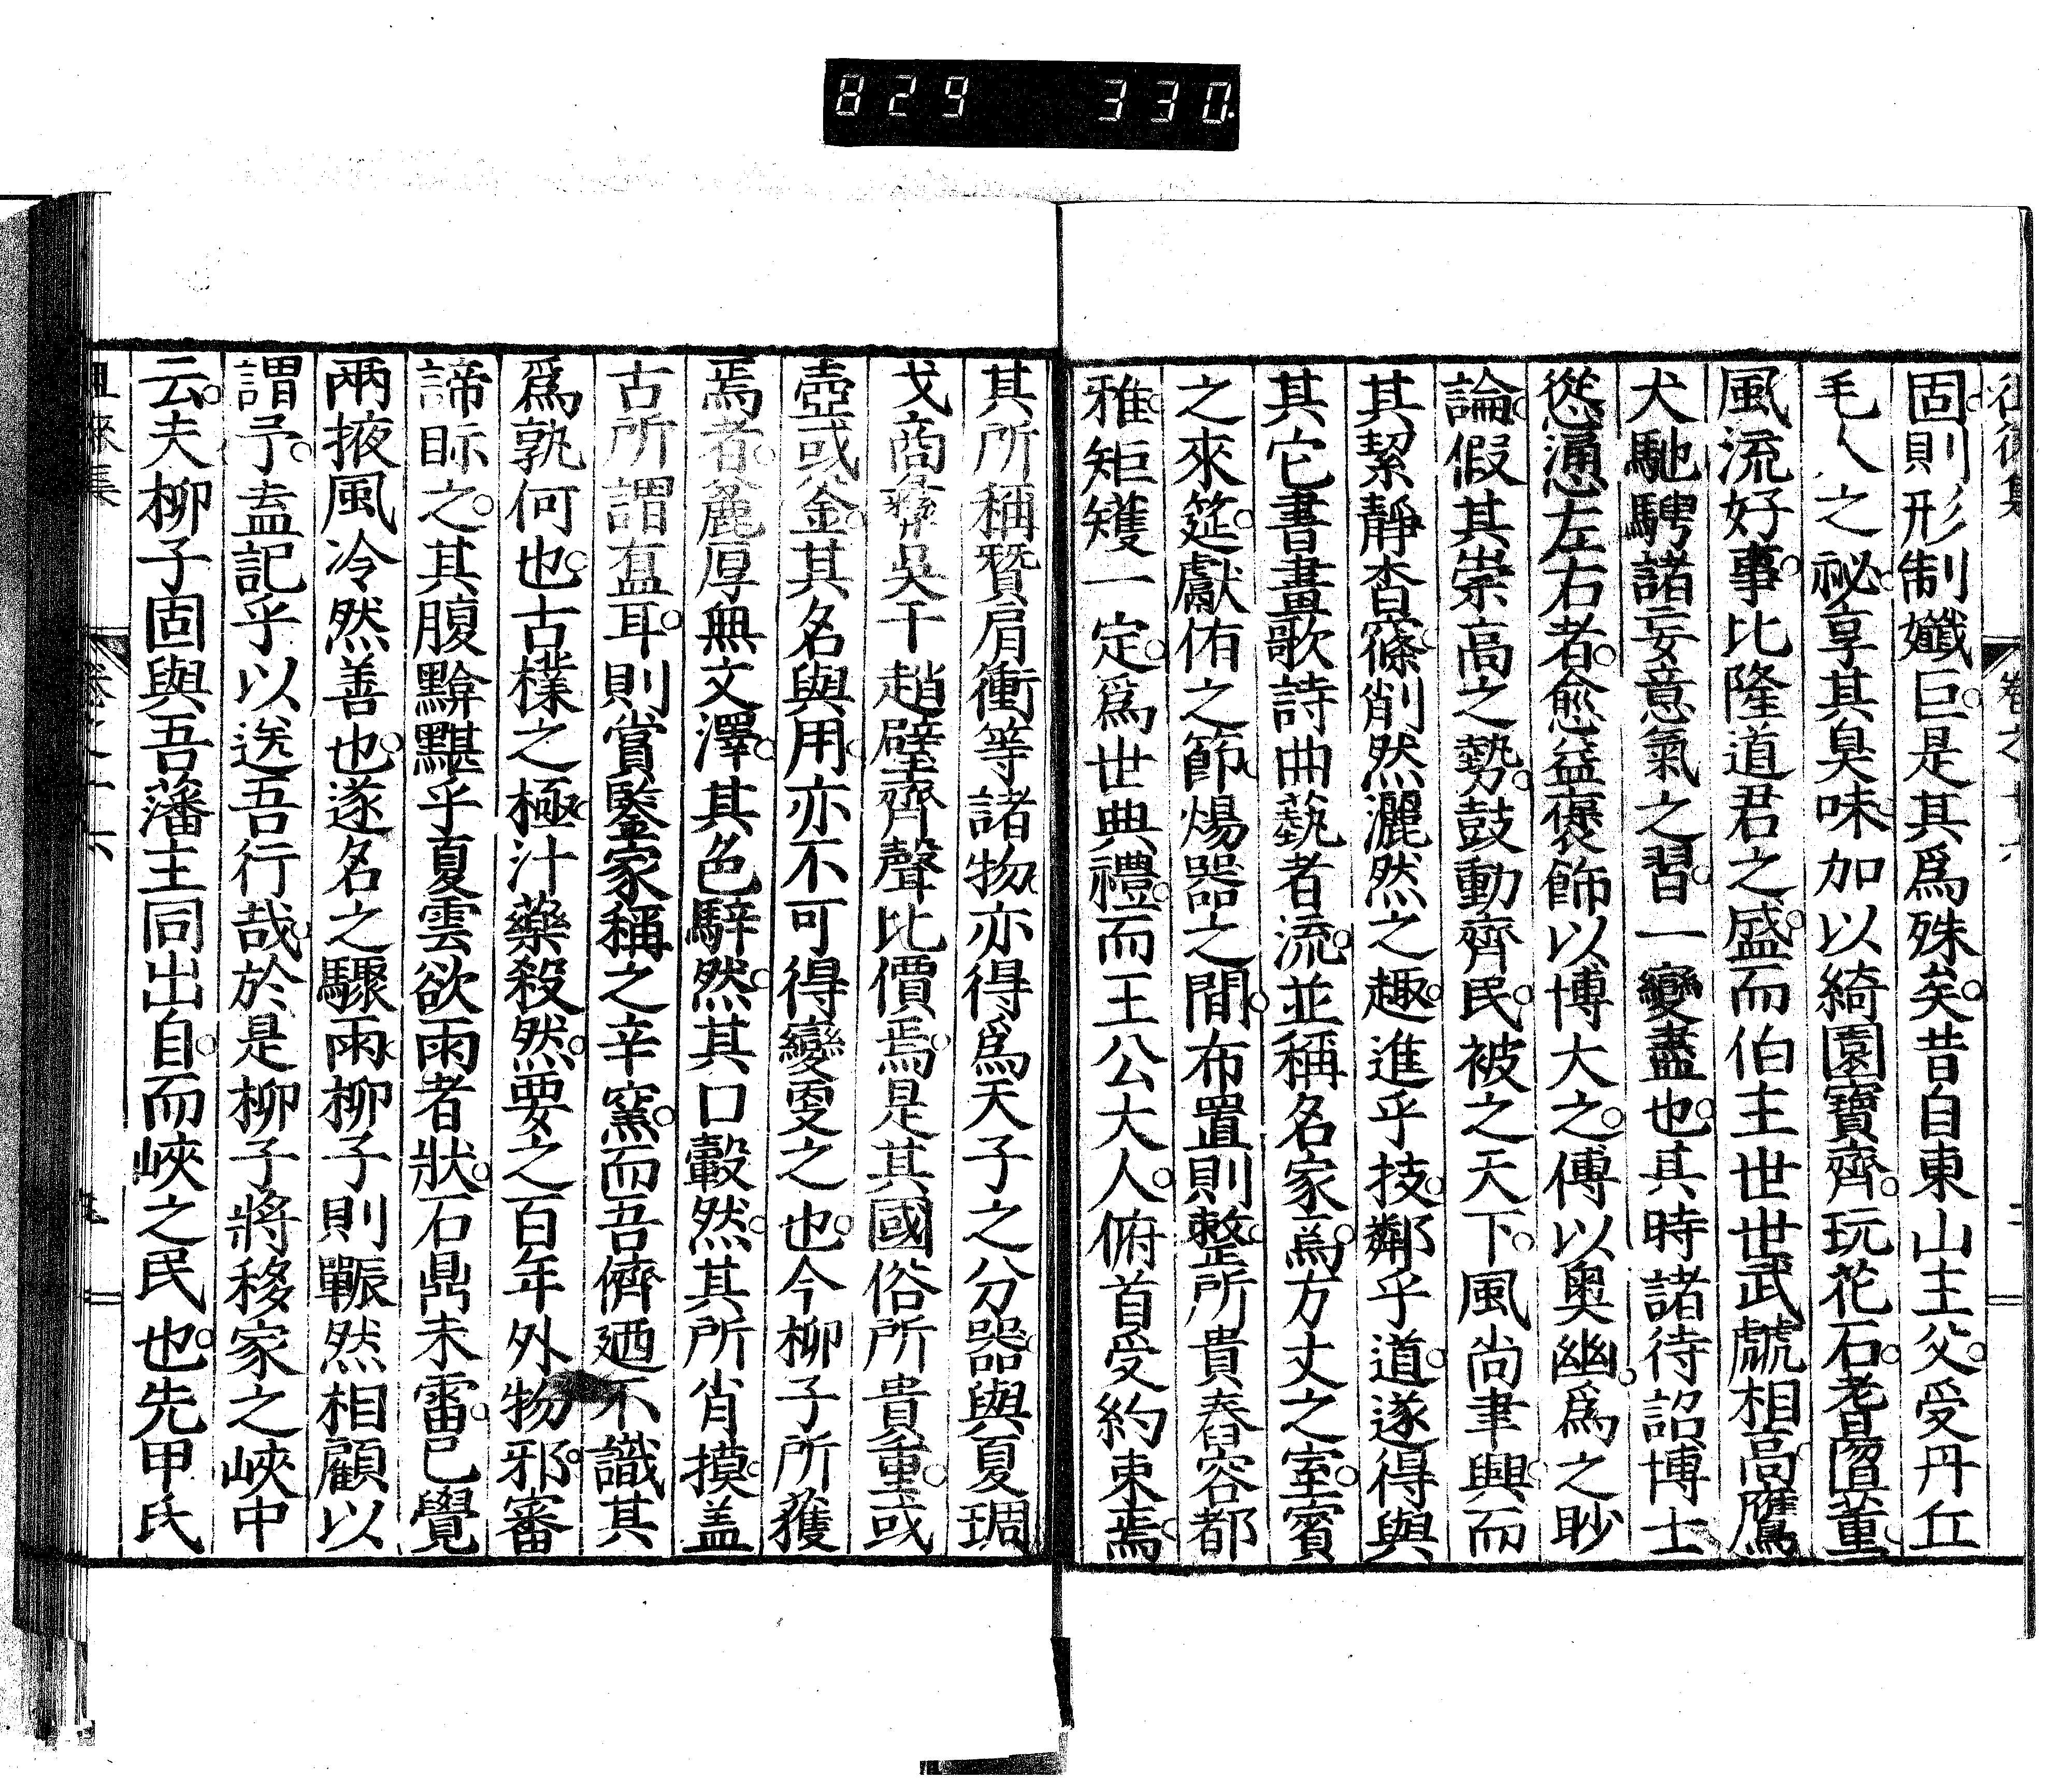 829 330.
固則形制孅巨是其爲殊矣昔自東山主父受丹丘
毛人之祕享其臭味加以綺園寶齊玩花石耆圖董
風流好事比隆道君之盛而伯主世世武虣相高鷹
犬馳騁諸妄意氣之習一變盡也其時諸待詔博士
慫慂左右者愈益褒飾以博大之傅以奧幽爲之眇
論假其崇高之勢鼓動齊民被之天下風尚聿興而
其絜靜杳窱削然灑然之趣進乎技鄰乎道遂得與
其它書畫歌詩曲藝者流並稱名家焉方丈之室賓
之來筵獻侑之節煬器之間布置則整所貴舂容都
雅矩矱一定爲世典禮而王公大人俯首受約束焉
其所稱贊肩衝等諸物亦得爲天子之分器與夏琱
戈商彝吳干趙璧齊聲比價焉是其國俗所貴重或
壺或金其名與用亦不可得變更之也今柳子所獲
焉者麁厚無文澤其色騂然其口轂然其所肖摸盖
古所謂盁耳則賞鑒家稱之辛窯而吾儕廼不識其
爲孰何也古樸之極汁藥殺然要之百年外物邪審
諦眎之其腹黭黮乎夏雲欲雨者狀石鼎未霤已覺
兩掖風冷然善也遂名之驟雨柳子則囅然相顧以
謂予盍記乎以送吾行哉於是柳子將移家之峽中
云夫柳子固與吾藩主同出自而峽之民也先甲氏